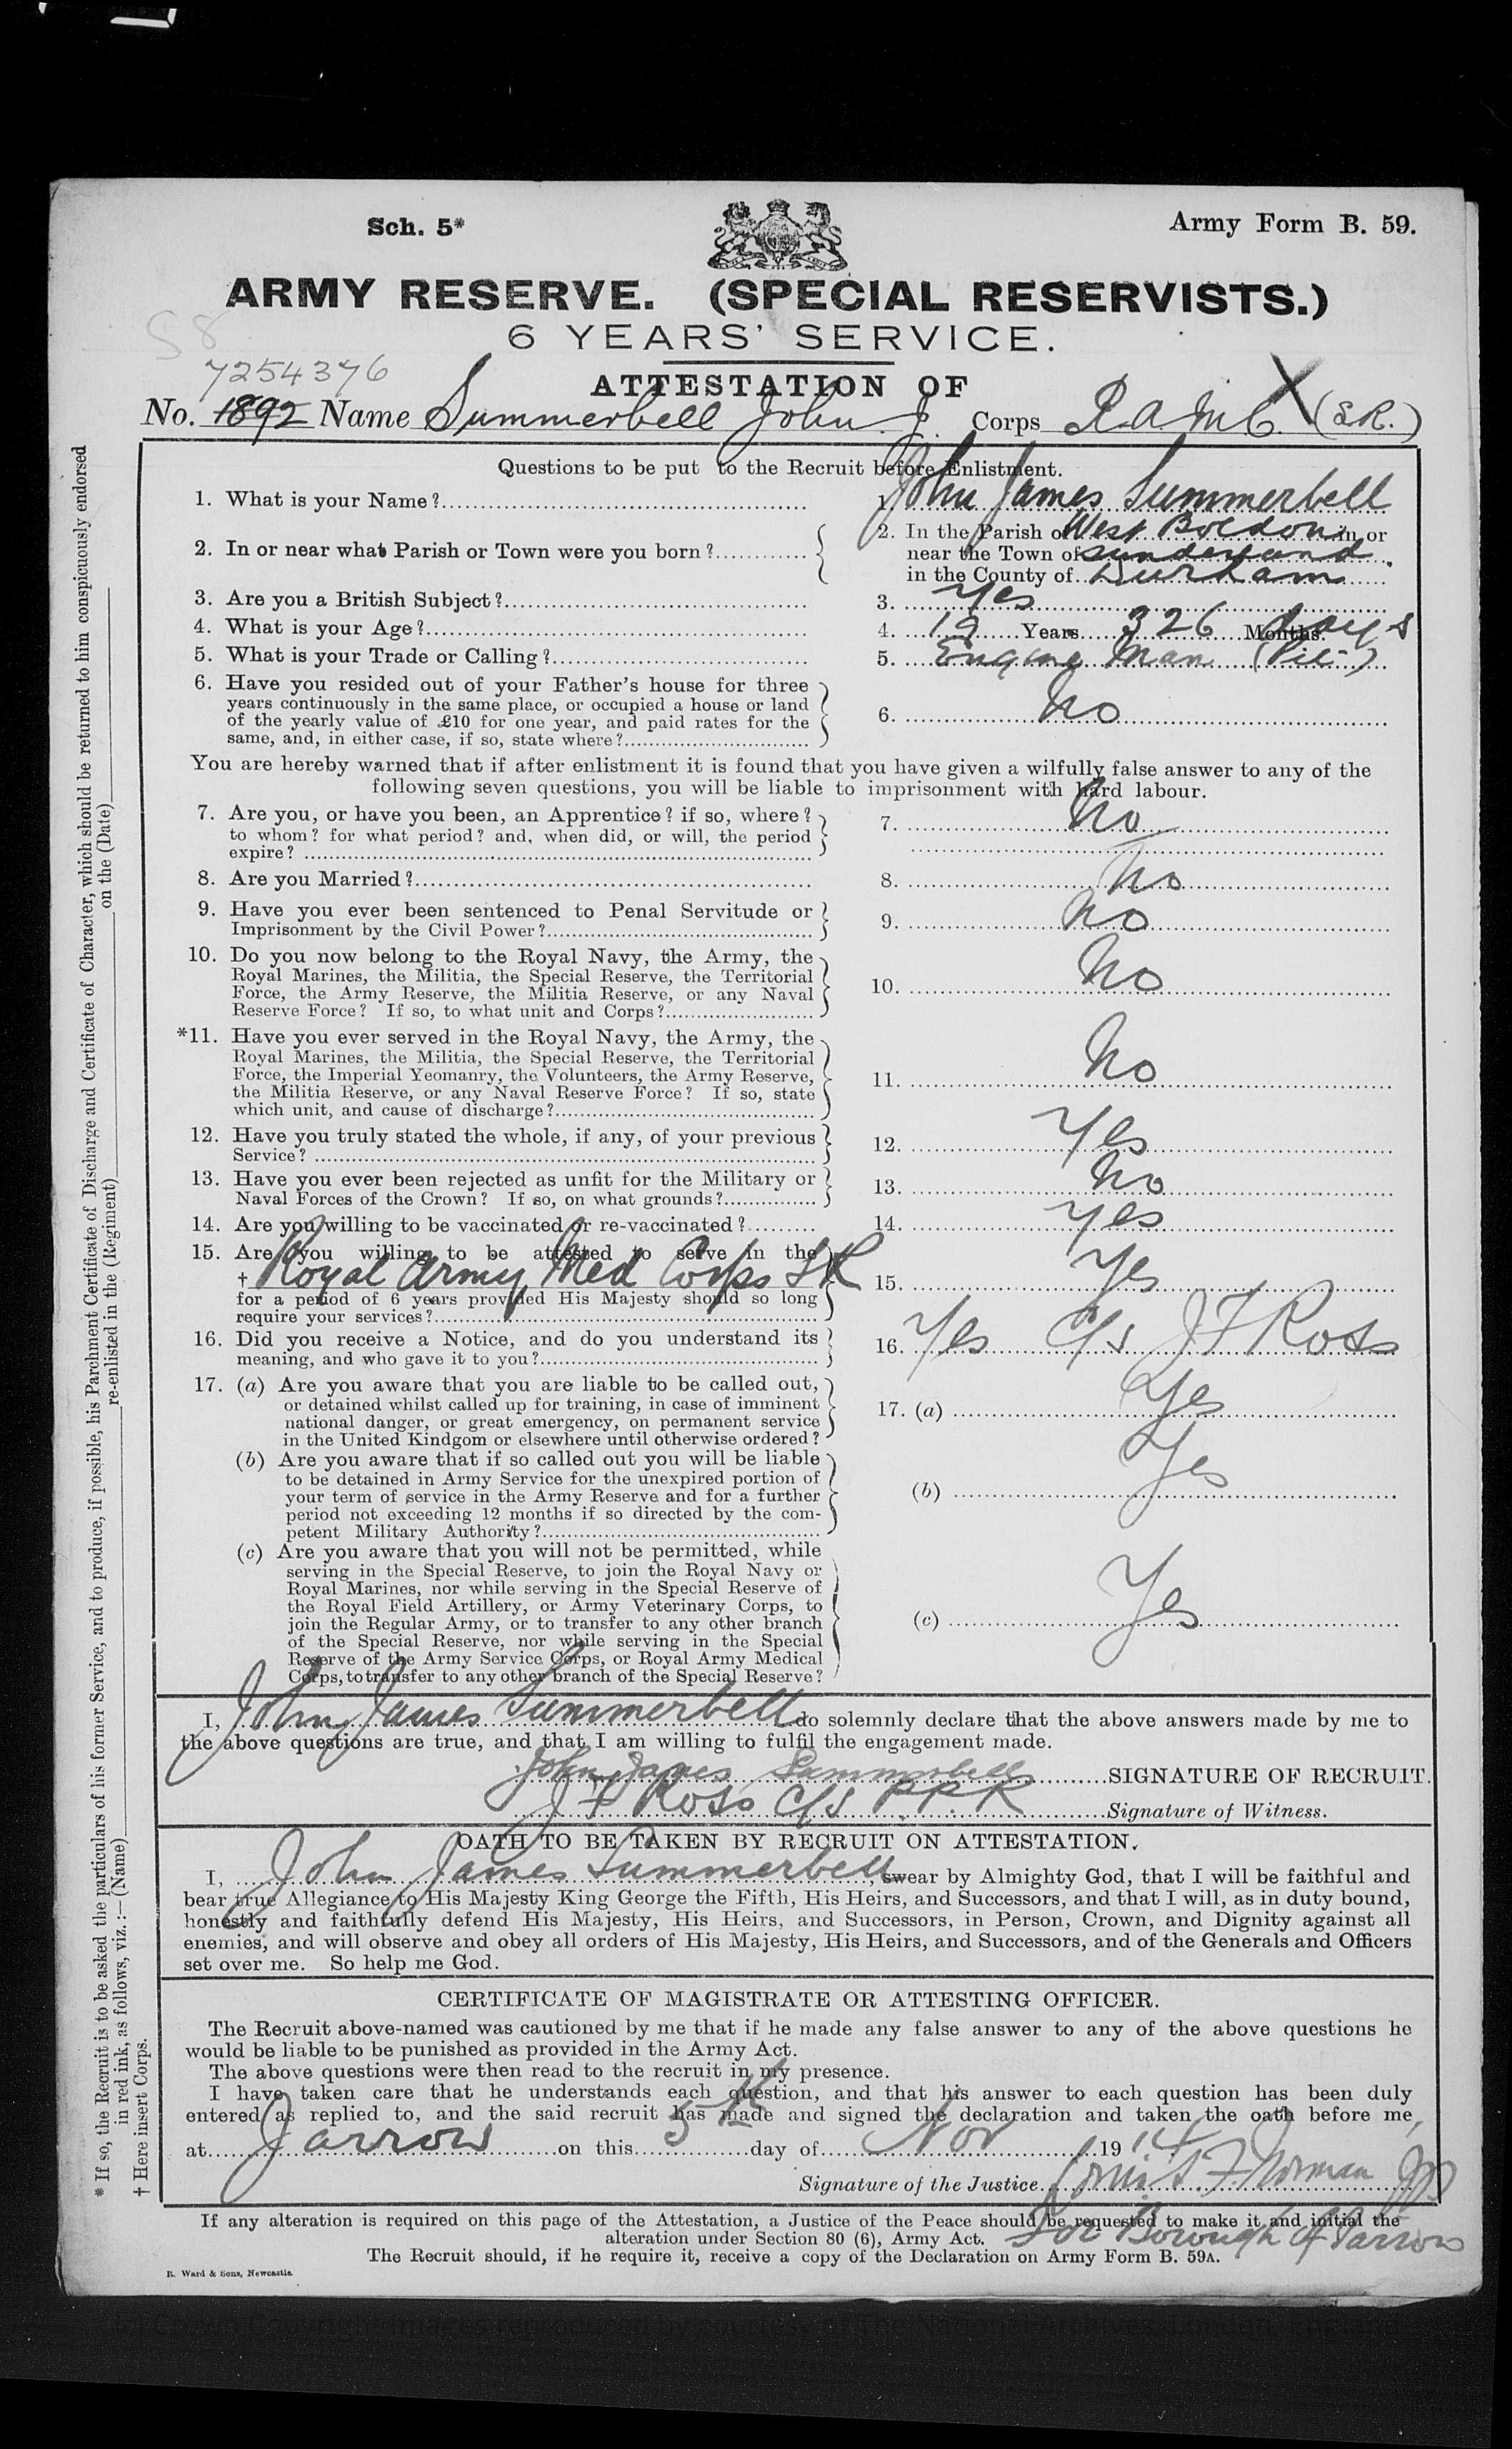 Sch. 5*
Army Form B. 59.
ARMY RESERVE. (SPECIAL RESERVISTS.)
6 YEARS' SERVICE.
S8
7254376
ATTESTATION OF
No. 1892 Name Summerbell John J. Corps R.A.M.C. (S.R.)
Questions to be put to the Recruit before Enlistment.
1. What is your Name? 1. John James Summerbell
2. In or near what Parish or Town were you born? 2. In the Parish of West Boldon in or
near the Town of Sunderland
in the County of Durham
3. Are you a British Subject? 3. Yes
4. What is your Age? 4. 19 Years 326 Months. days
5. What is your Trade or Calling? 5. Engine Man (Pit)
6. Have you resided out of your Father's house for three
years continuously in the same place, or occupied a house or land
of the yearly value of £10 for one year, and paid rates for the
same, and, in either case, if so, state where? 6. No
You are hereby warned that if after enlistment it is found that you have given a wilfully false answer to any of the
following seven questions, you will be liable to imprisonment with hard labour.
7. Are you, or have you been, an Apprentice? if so, where? 7. No
to whom? for what period? and, when did, or will, the period
expire?
8. Are you Married? 8. No
9. Have you ever been sentenced to Penal Servitude or
Imprisonment by the Civil Power? 9. No
10. Do you now belong to the Royal Navy, the Army, the
Royal Marines, the Militia, the Special Reserve, the Territorial
Force, the Army Reserve, the Militia Reserve, or any Naval
Reserve Force? If so, to what unit and Corps? 10. No
*11. Have you ever served in the Royal Navy, the Army, the
Royal Marines, the Militia, the Special Reserve, the Territorial
Force, the Imperial Yeomanry, the Volunteers, the Army Reserve,
the Militia Reserve, or any Naval Reserve Force? If so, state
which unit, and cause of discharge? 11. No
12. Have you truly stated the whole, if any, of your previous
Service? 12. Yes
13. Have you ever been rejected as unfit for the Military or
Naval Forces of the Crown? If so, on what grounds? 13. No
14. Are you willing to be vaccinated or re-vaccinated? 14. Yes
15. Are you willing to be attested to serve in the
† Royal Army Med Corps SR 15. Yes
for a period of 6 years provided His Majesty should so long
require your services?
16. Did you receive a Notice, and do you understand its
meaning, and who gave it to you? 16. Yes C/S J F Ross
17. (a) Are you aware that you are liable to be called out,
or detained whilst called up for training, in case of imminent
national danger, or great emergency, on permanent service
in the United Kindgom or elsewhere until otherwise ordered? 17. (a) Yes
(b) Are you aware that if so called out you will be liable
to be detained in Army Service for the unexpired portion of
your term of service in the Army Reserve and for a further
period not exceeding 12 months if so directed by the com-
petent Military Authority? (b) Yes
(c) Are you aware that you will not be permitted, while
serving in the Special Reserve, to join the Royal Navy or
Royal Marines, nor while serving in the Special Reserve of
the Royal Field Artillery, or Army Veterinary Corps, to
join the Regular Army, or to transfer to any other branch
of the Special Reserve, nor while serving in the Special
Reserve of the Army Service Corps, or Royal Army Medical
Corps, to transfer to any other branch of the Special Reserve? (c) Yes
I, John James Summerbell do solemnly declare that the above answers made by me to
the above questions are true, and that I am willing to fulfil the engagement made.
John James Summerbell SIGNATURE OF RECRUIT.
J F Ross C/S Signature of Witness.
OATH TO BE TAKEN BY RECRUIT ON ATTESTATION.
I, John James Summerbell, swear by Almighty God, that I will be faithful and
bear true Allegiance to His Majesty King George the Fifth, His Heirs, and Successors, and that I will, as in duty bound,
honestly and faithfully defend His Majesty, His Heirs, and Successors, in Person, Crown, and Dignity against all
enemies, and will observe and obey all orders of His Majesty, His Heirs, and Successors, and of the Generals and Officers
set over me. So help me God.
CERTIFICATE OF MAGISTRATE OR ATTESTING OFFICER.
The Recruit above-named was cautioned by me that if he made any false answer to any of the above questions he
would be liable to be punished as provided in the Army Act.
The above questions were then read to the recruit in my presence.
I have taken care that he understands each question, and that his answer to each question has been duly
entered as replied to, and the said recruit has made and signed the declaration and taken the oath before me,
at Jarrow on this 5th day of Nov 1914
Signature of the Justice F Norman JP
For Borough of Jarrow
If any alteration is required on this page of the Attestation, a Justice of the Peace should be requested to make it and initial the
alteration under Section 80 (6), Army Act.
The Recruit should, if he require it, receive a copy of the Declaration on Army Form B. 59A.
R. Ward & Sons, Newcastle.
* If so, the Recruit is to be asked the particulars of his former Service, and to produce, if possible, his Parchment Certificate of Discharge and Certificate of Character, which should be returned to him conspicuously endorsed
in red ink, as follows, viz.:—(Name) re-enlisted in the (Regiment) on the (Date)
† Here insert Corps.
(c) Crown Copyright Images reproduced by courtesy of The National Archives, London, England